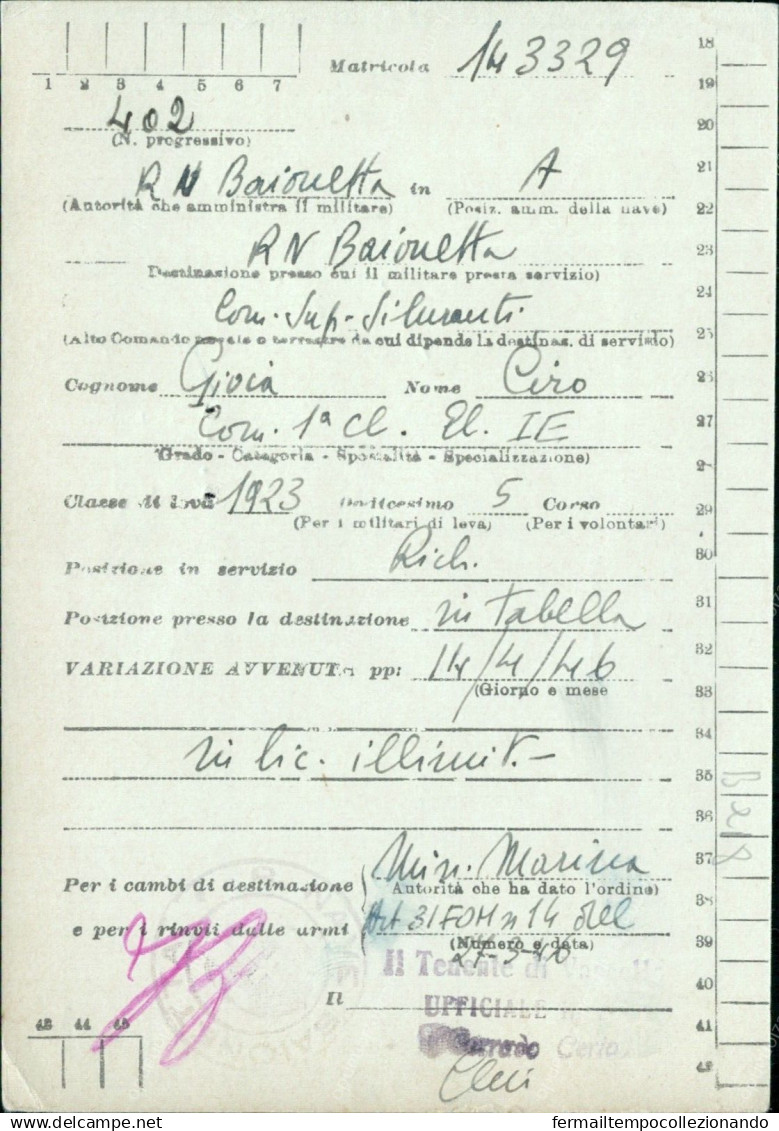 Matricola 143329
1 2 3 4 5 6 7
402
(N. progressivo)
RN Baionetta in A
(Autorità che amministra il militare) (Posiz. amm. della nave)
RN Baionetta
Destinazione presso cui il militare presta servizio)
Com. Sup. Siluranti
(Alto Comando navale o terrestre da cui dipende la destinaz. di servizio)
Cognome Gioia Nome Ciro
Com. 1ª Cl. El. IE
Grado - Categoria - Specialità - Specializzazione)
Classe di leva 1923 Dodicesimo 5 Corso
(Per i militari di leva) (Per i volontari)
Posizione in servizio Rich.
Posizione presso la destinazione in Tabella
VARIAZIONE AVVENUTA pp: 14/4/46
(Giorno e mese
in lic. illimit. -
Min. Marina
Per i cambi di destinazione Autorità che ha dato l'ordine)
e per i rinvii dalle armi Art 31 FOM n 14 del
(Numero e data)
Il Tenente di
Il UFFICIALE
Cerio
43 44 45
18
19
20
21
22
23
24
25
26
27
28
29
30
31
32
33
34
35
36
37
38
39
40
41
42
B218
fermailtempocollezionando